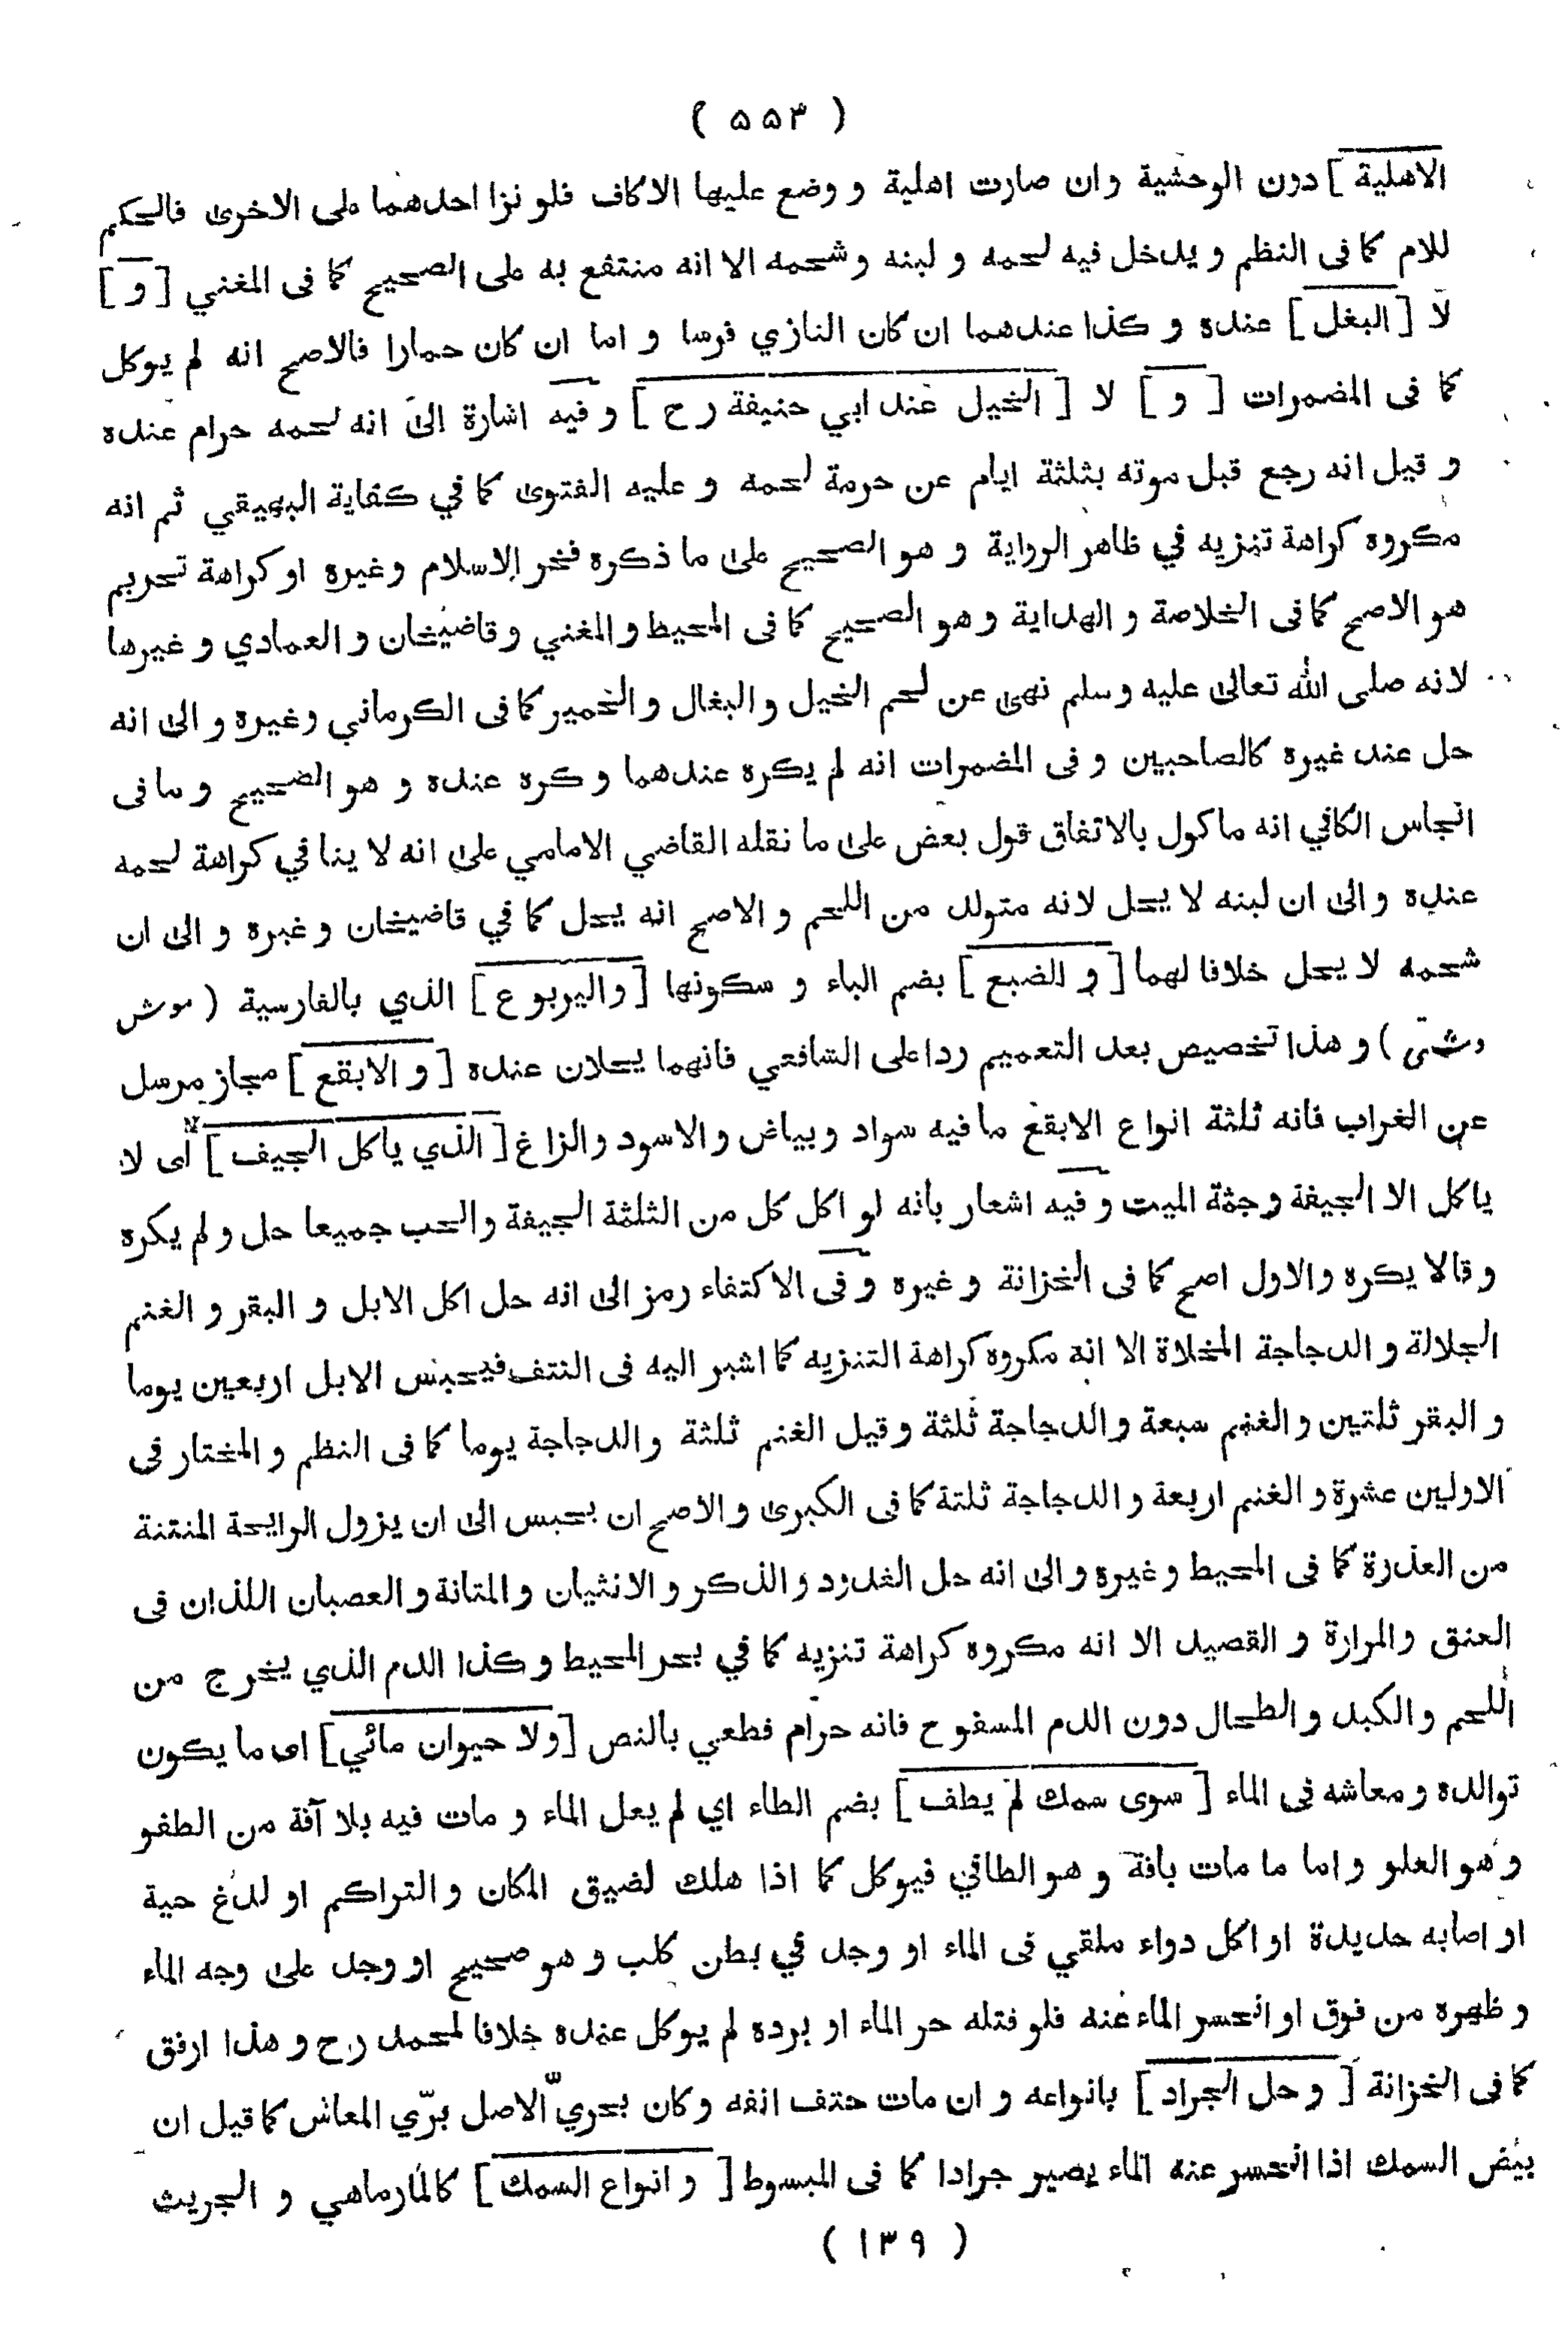 ( ۵۵۳ )
الاهلية ] دون الوحشية وان صارت اهلية و وضع عليها الاكاف فلو نزا احدهما على الاخرى فالحكم
للام كما فى النظم و يدخل فيه لحمه و لبنه و شحمه الا انه منتفع به على الصحيح كما فى المغني [ و ]
لا [ البغل ] عنده و كذا عندهما ان كان النازي فرسا و اما ان كان حمارا فالاصح انه لم يوكل
كما فى المضمرات [ و ] لا [ الخيل عند ابي حنيفة رح ] و فيه اشارة الى انه لحمه حرام عنده
و قيل انه رجع قبل موته بثلثة ايام عن حرمة لحمه و عليه الفتوى كما في كفاية البهيقي ثم انه
مكروه كراهة تنزيه في ظاهر الرواية و هو الصحيح على ما ذكره فخر الاسلام وغيره او كراهة تحريم
هو الاصح كما فى الخلاصة و الهداية و هو الصحيح كما فى المحيط و المغني و قاضيخان و العمادي و غيرها
لانه صلى الله تعالى عليه وسلم نهى عن لحم الخيل و البغال و الخمير كما فى الكرماني وغيره و الى انه
حل عند غيره كالصاحبين و فى المضمرات انه لم يكره عندهما و كره عنده و هو الصحيح و ما فى
انجاس الكافي انه ماكول بالاتفاق قول بعض على ما نقله القاضي الامامي على انه لا ينافي كراهة لحمه
عنده و الى ان لبنه لا يحل لانه متولد من اللحم و الاصح انه يحل كما في قاضيخان و غيره و الى ان
شحمه لا يحل خلافا لهما [ و الضبع ] بضم الباء و سكونها [ و اليربوع ] الذي بالفارسية ( موش
دشتى ) و هذا تخصيص بعد التعميم ردا على الشافعي فانهما يحلان عنده [ و الابقع ] مجاز مرسل
عن الغراب فانه ثلثة انواع الابقع ما فيه سواد و بياض و الاسود و الزاغ [ الذي ياكل الجيف ] اى لا
ياكل الا الجيفة و جثة الميت و فيه اشعار بانه لو اكل كل من الثلثة الجيفة والحب جميعا حل و لم يكره
و قالا يكره والاول اصح كما فى الخزانة و غيره و فى الاكتفاء رمز الى انه حل اكل الابل و البقر و الغنم
الجلالة و الدجاجة المخلاة الا انه مكروه كراهة التنزيه كما اشير اليه فى النتف فيحبس الابل اربعين يوما
و البقر ثلثين و الغنم سبعة و الدجاجة ثلثة و قيل الغنم ثلثة والدجاجة يوما كما فى النظم و المختار فى
الاولين عشرة و الغنم اربعة و الدجاجة ثلثة كما فى الكبرى و الاصح ان يحبس الى ان يزول الرايحة المنتنة
من العذرة كما فى المحيط و غيره و الى انه حل الغدود و الذكر و الانثيان و المثانة و العصبان اللذان فى
العنق والمرارة و القصيد الا انه مكروه كراهة تنزيه كما في بحر المحيط و كذا الدم الذي يخرج من
اللحم و الكبد و الطحال دون الدم المسفوح فانه حرام قطعي بالنص [ ولا حيوان مائي ] اى ما يكون
توالده و معاشه فى الماء [ سوى سمك لم يطف ] بضم الطاء اي لم يعل الماء و مات فيه بلا آفة من الطفو
و هو العلو و اما ما مات بافة و هو الطافي فيوكل كما اذا هلك لضيق المكان و التراكم او لدغ حية
او اصابه حديدة او اكل دواء ملقي فى الماء او وجد في بطن كلب و هو صحيح او وجد على وجه الماء
و ظهره من فوق او انحسر الماء عنه فلو قتله حر الماء او برده لم يوكل عنده خلافا لمحمد رح و هذا ارفق
كما فى الخزانة [ و حل الجراد ] بانواعه و ان مات حتف انفه و كان بحريّ الاصل برّي المعاش كما قيل ان
بيض السمك اذا انحسر عنه الماء يصير جرادا كما فى المبسوط [ و انواع السمك ] كالمارماهي و الجريث
( ۱۳۹ )